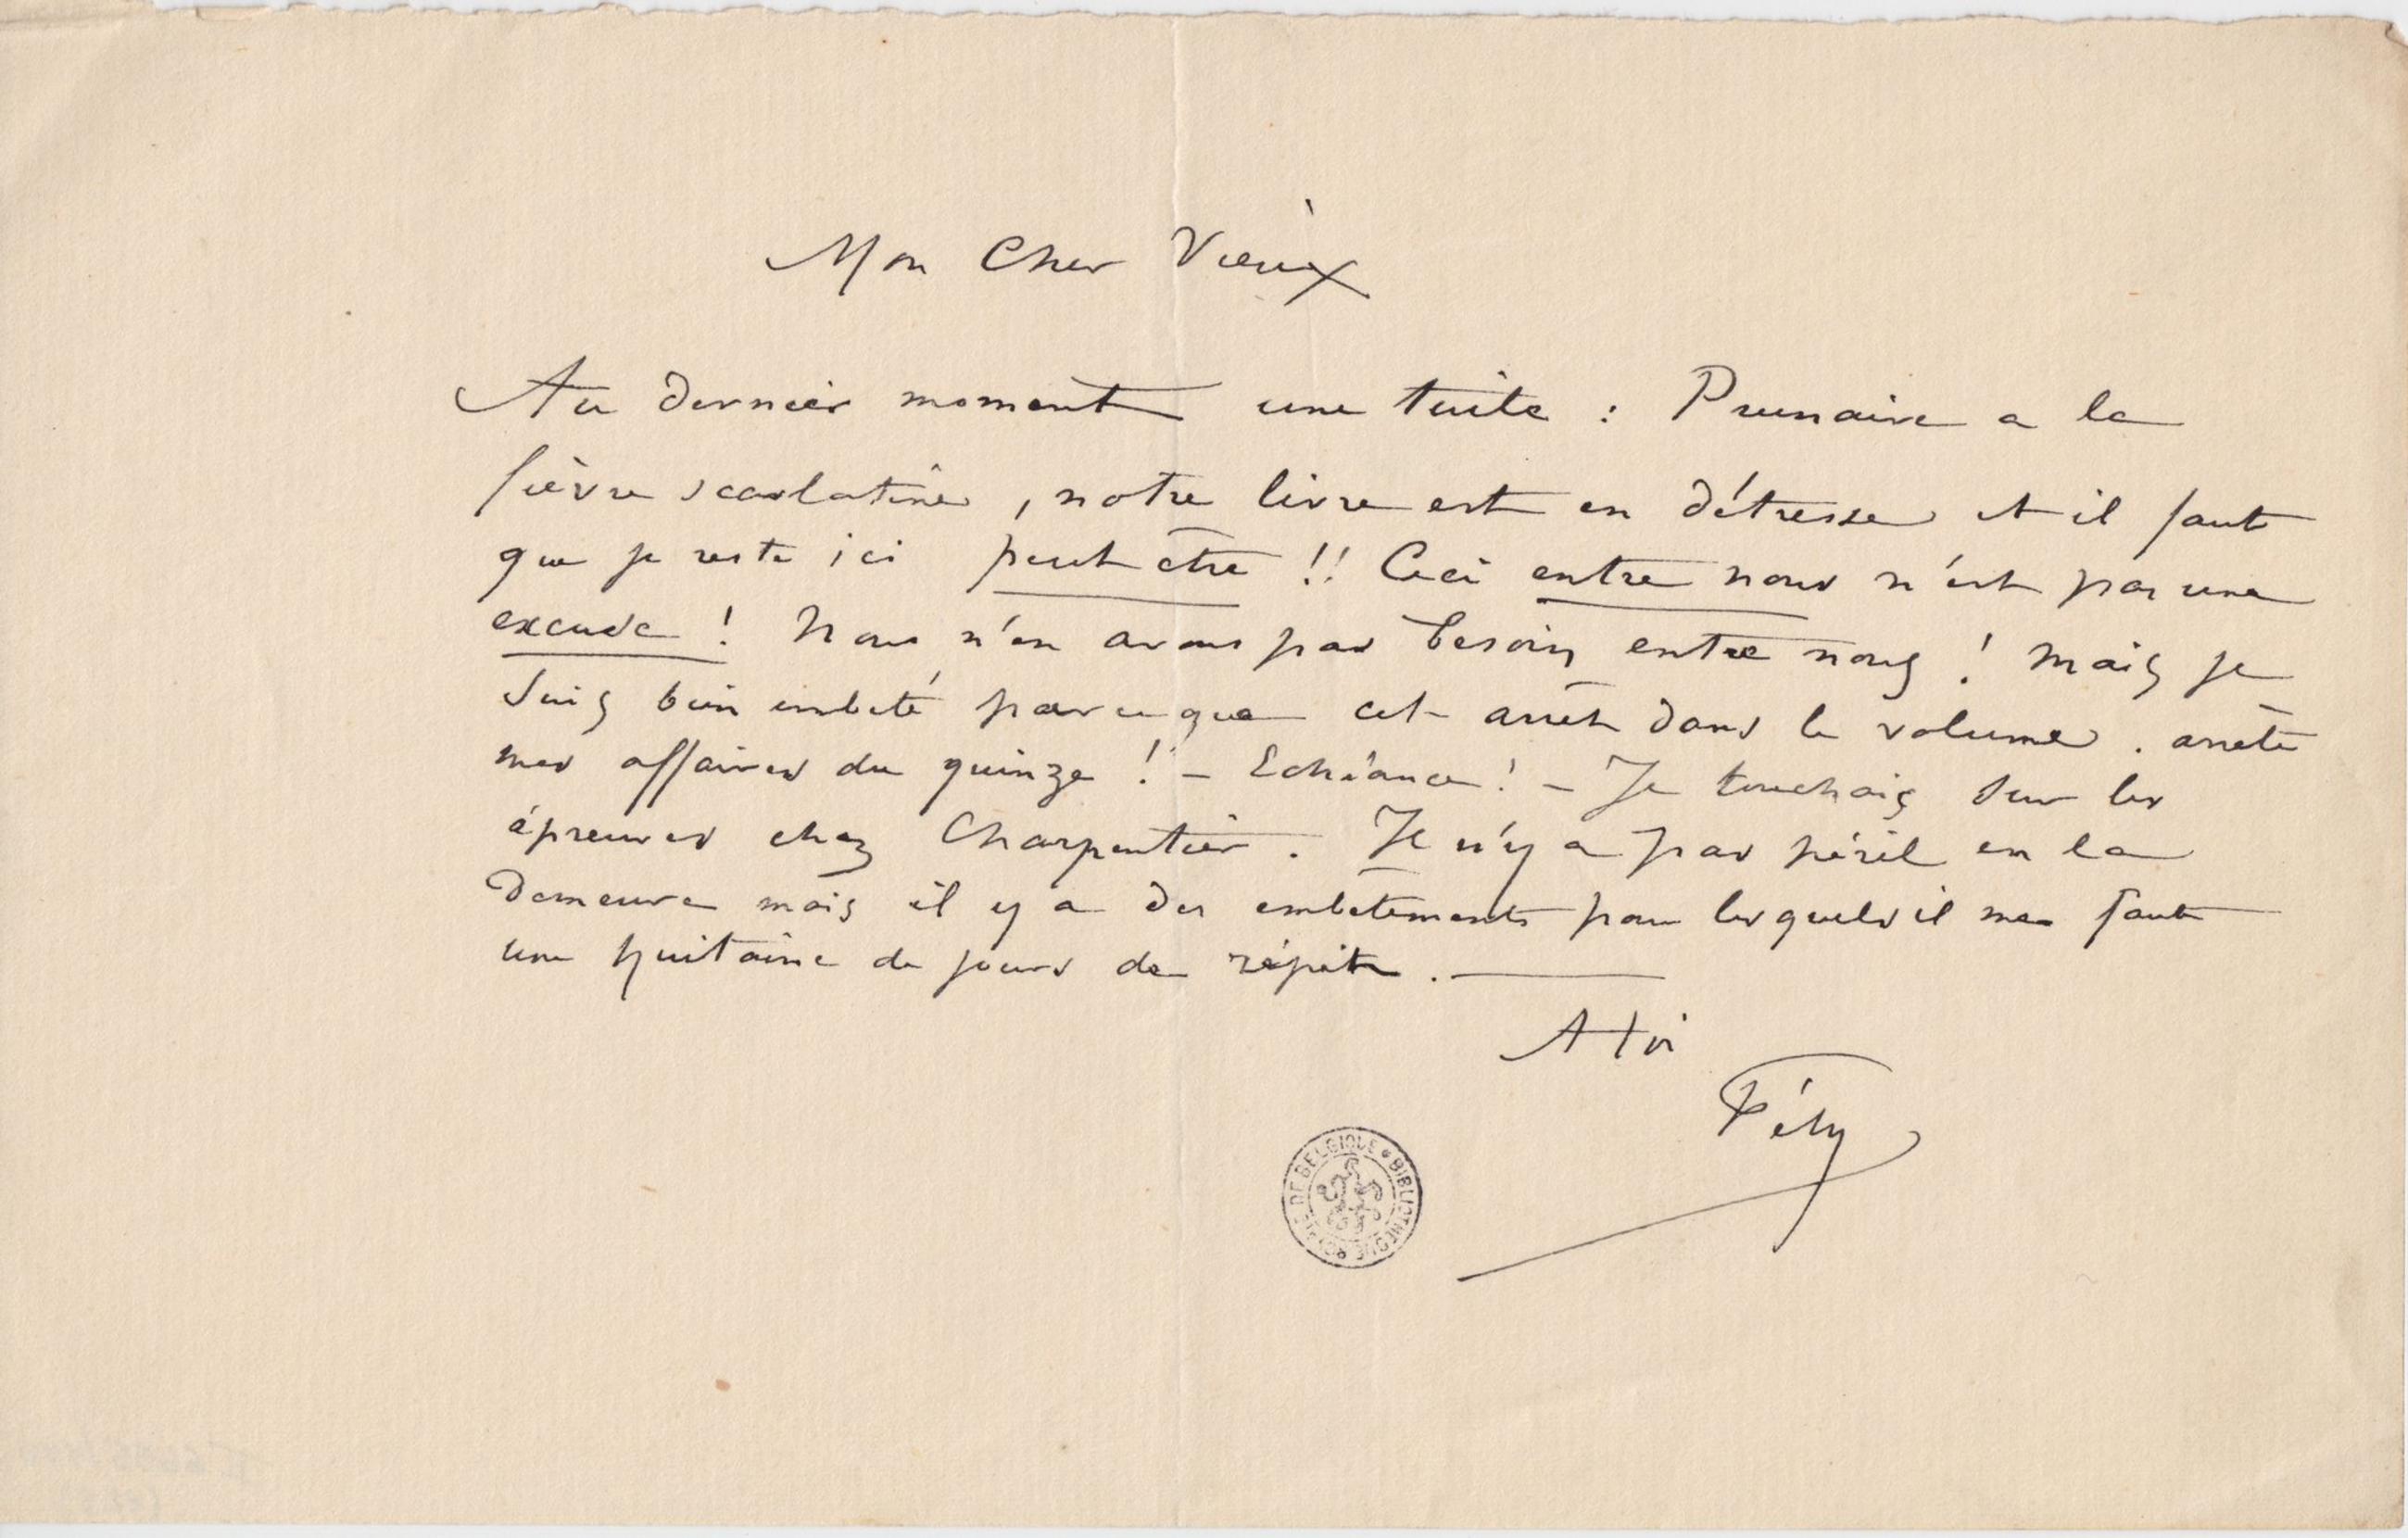 Mon Cher Vieux
Au dernier moment une tuile : Prunaire a la
fièvre scarlatine, notre livre est en détresse et il faut
que je reste ici peut être !! Ceci entre nous n'est pas une
excuse ! Nous n'en avons pas besoin entre nous ! Mais je
suis bien embêté parce que cet arrêt dans le volume. arrête
mes affaires du quinze ! – Echéance ! – Je touchais sur les
épreuves chez Charpentier. Il n'y a pas péril en la
demeure mais il y a des embêtements pour lesquels il me faut
une huitaine de jours de répit. —
A toi
Fély
BIBLIOTHEQUE ROYALE DE BELGIQUE